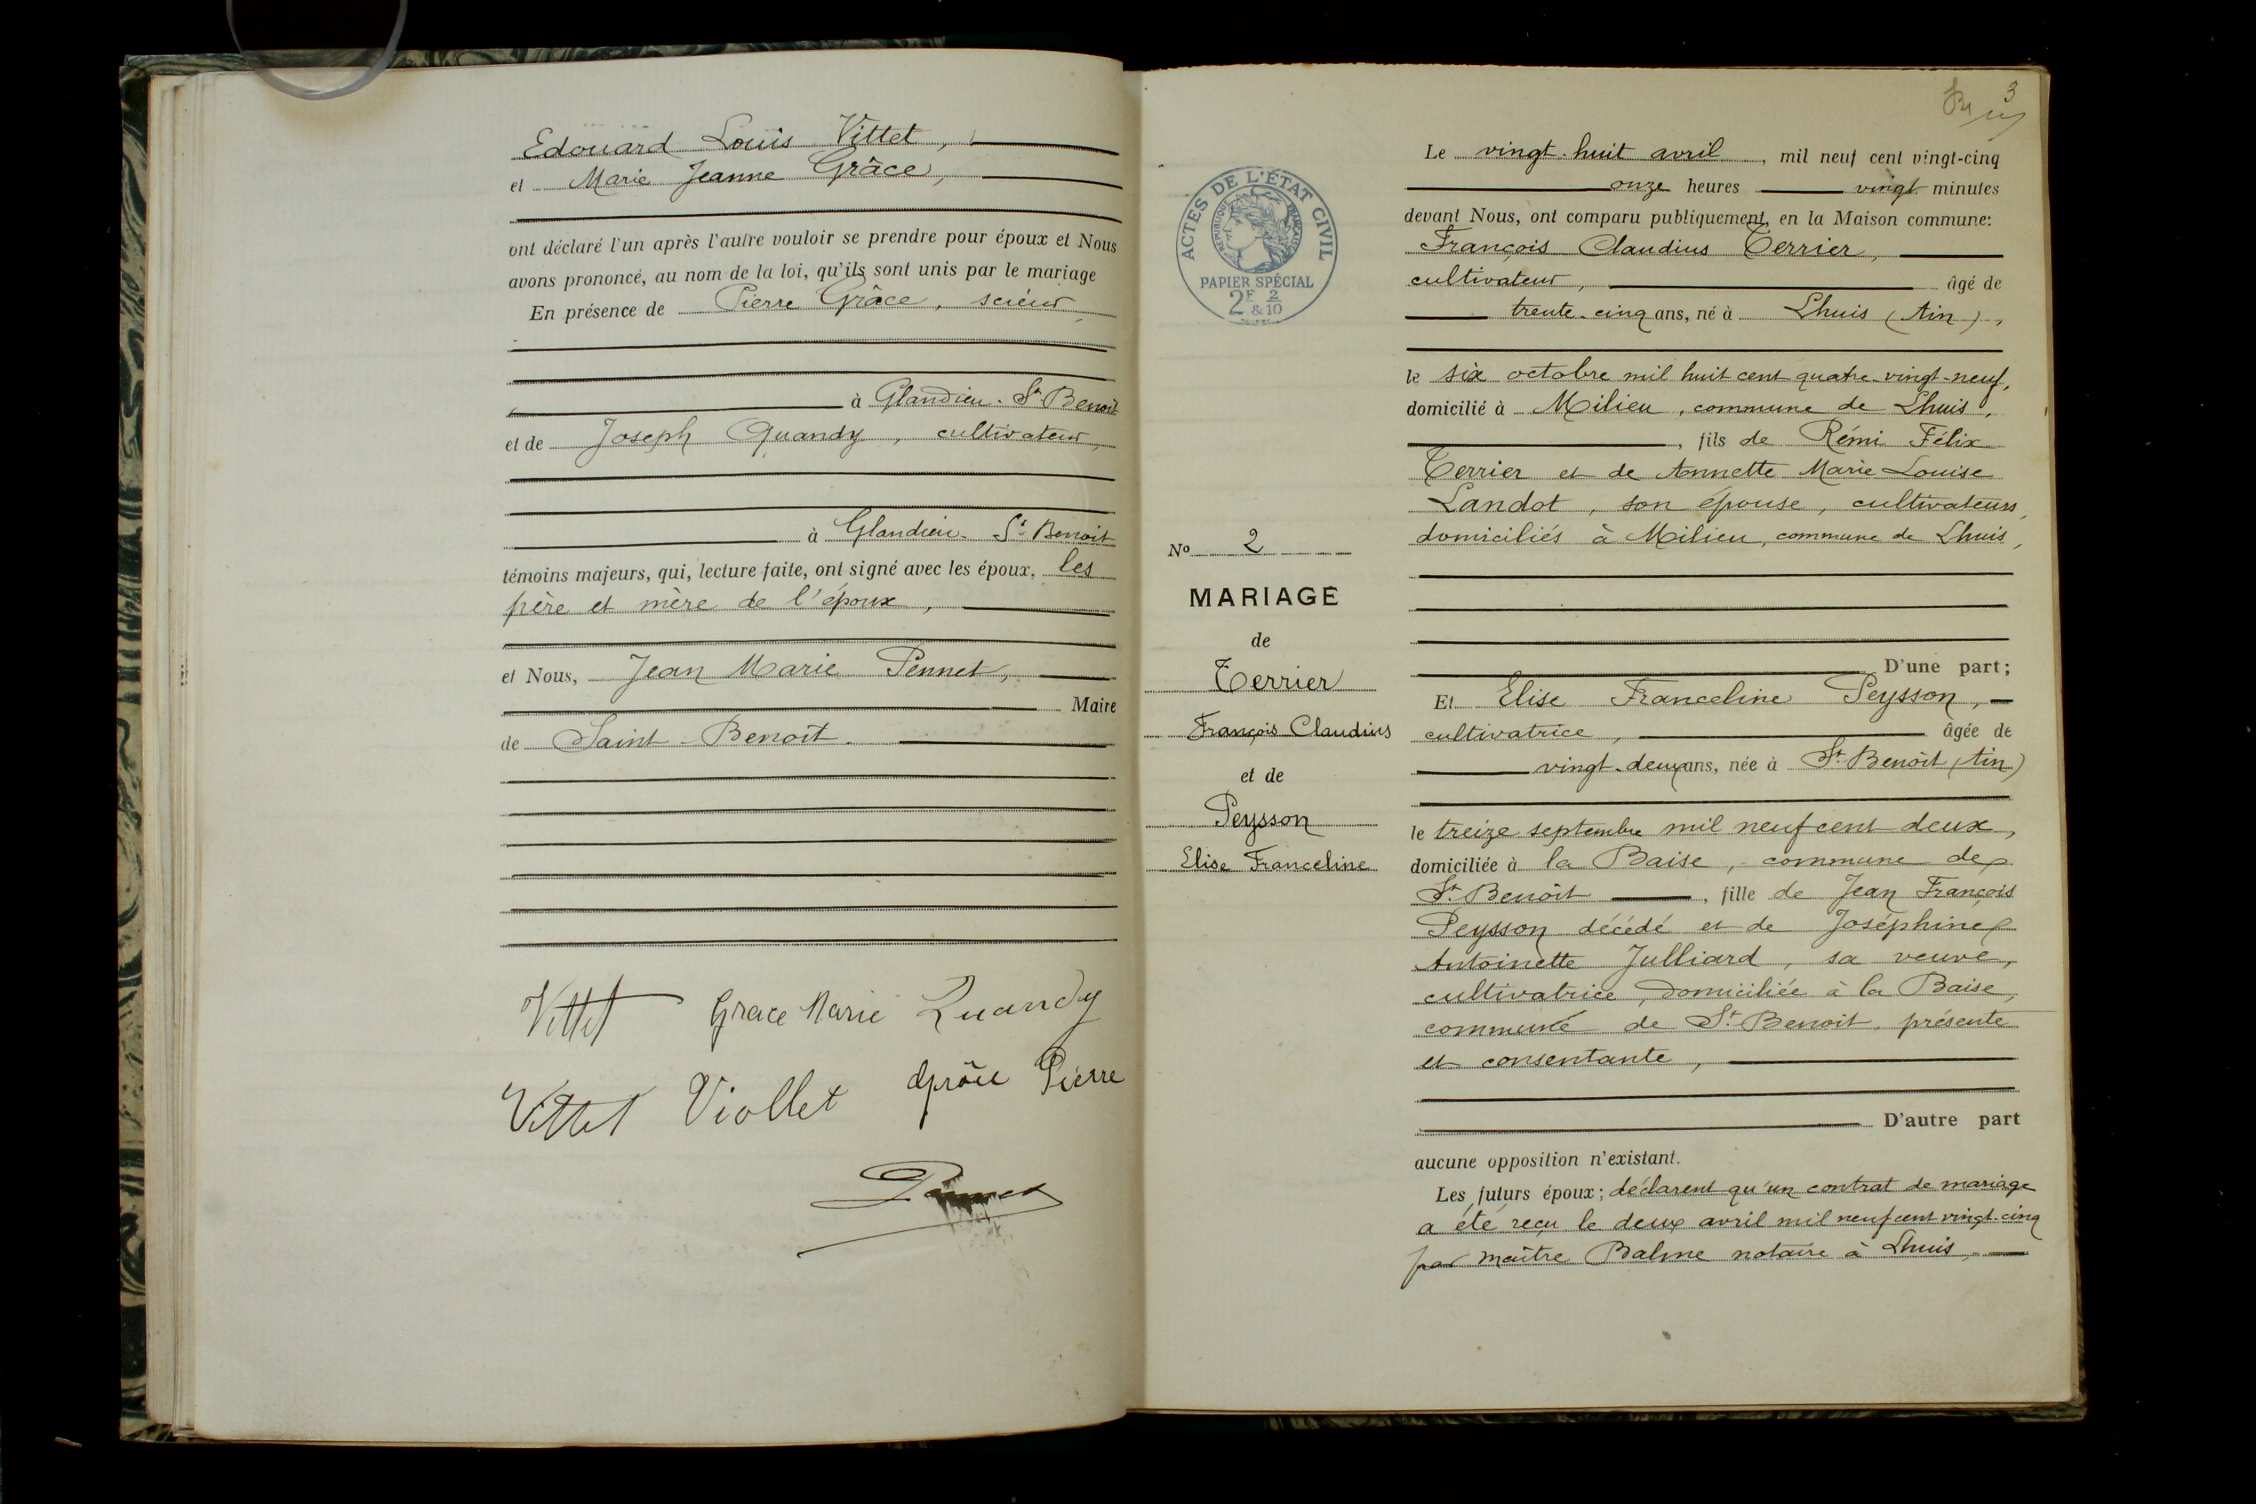 Edouard Louis Vittet,
et Marie Jeanne Grâce,
ont déclaré l'un après l'autre vouloir se prendre pour époux et Nous
avons prononcé, au nom de la loi, qu'ils sont unis par le mariage
En présence de Pierre Grâce, scieur,
à Glandieu - St Benoit
et de Joseph Quandy, cultivateur,
à Glandieu - St Benoit
témoins majeurs, qui, lecture faite, ont signé avec les époux, les
père et mère de l'époux,
et Nous, Jean Marie Pennet,
Maire
de Saint-Benoît.
Vittet Grace Marie Quandy
Vittet Viollet Grâce Pierre
Pennet
3
ACTES DE L'ÉTAT CIVIL
RÉPUBLIQUE FRANÇAISE
PAPIER SPÉCIAL
2F & 2/10
No 2
MARIAGE
de
Terrier
François Claudius
et de
Peysson
Elise Franceline
Le vingt-huit avril, mil neuf cent vingt-cinq
onze heures vingt minutes
devant Nous, ont comparu publiquement, en la Maison commune:
François Claudius Terrier,
cultivateur, âgé de
trente-cinq ans, né à Lhuis (Ain),
le six octobre mil huit cent quatre-vingt-neuf,
domicilié à Milieu, commune de Lhuis,
, fils de Rémi Félix
Terrier et de Annette Marie Louise
Landot, son épouse, cultivateurs,
domiciliés à Milieu, commune de Lhuis,
D'une part;
Et Elise Franceline Peysson,
cultivatrice, âgée de
vingt-deux ans, née à St Benoît (Ain)
le treize septembre mil neuf cent deux,
domiciliée à la Baise, commune de
St Benoît, fille de Jean François
Peysson décédé et de Joséphine
Antoinette Julliard, sa veuve,
cultivatrice, domiciliée à la Baise,
commune de St Benoit, présente
et consentante,
D'autre part
aucune opposition n'existant.
Les futurs époux; déclarent qu'un contrat de mariage
a été reçu le deux avril mil neuf cent vingt-cinq
par Maître Balme notaire à Lhuis,